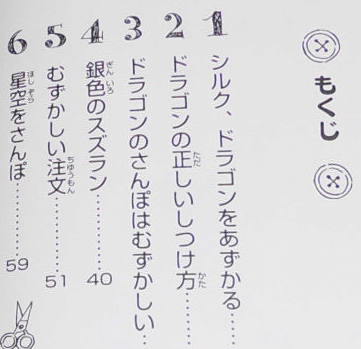 もくじ
1 シルク、ドラゴンをあずかる……
2 ドラゴンの正しいしつけ方……
3 ドラゴンのさんぽはむずかしい…
4 銀色のスズラン……40
5 むずかしい注文……51
6 星空をさんぽ……59